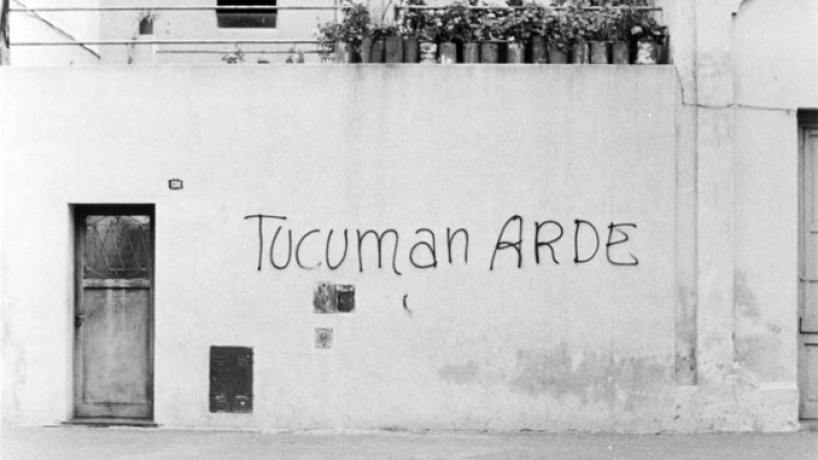 TUCUMAN ARDE